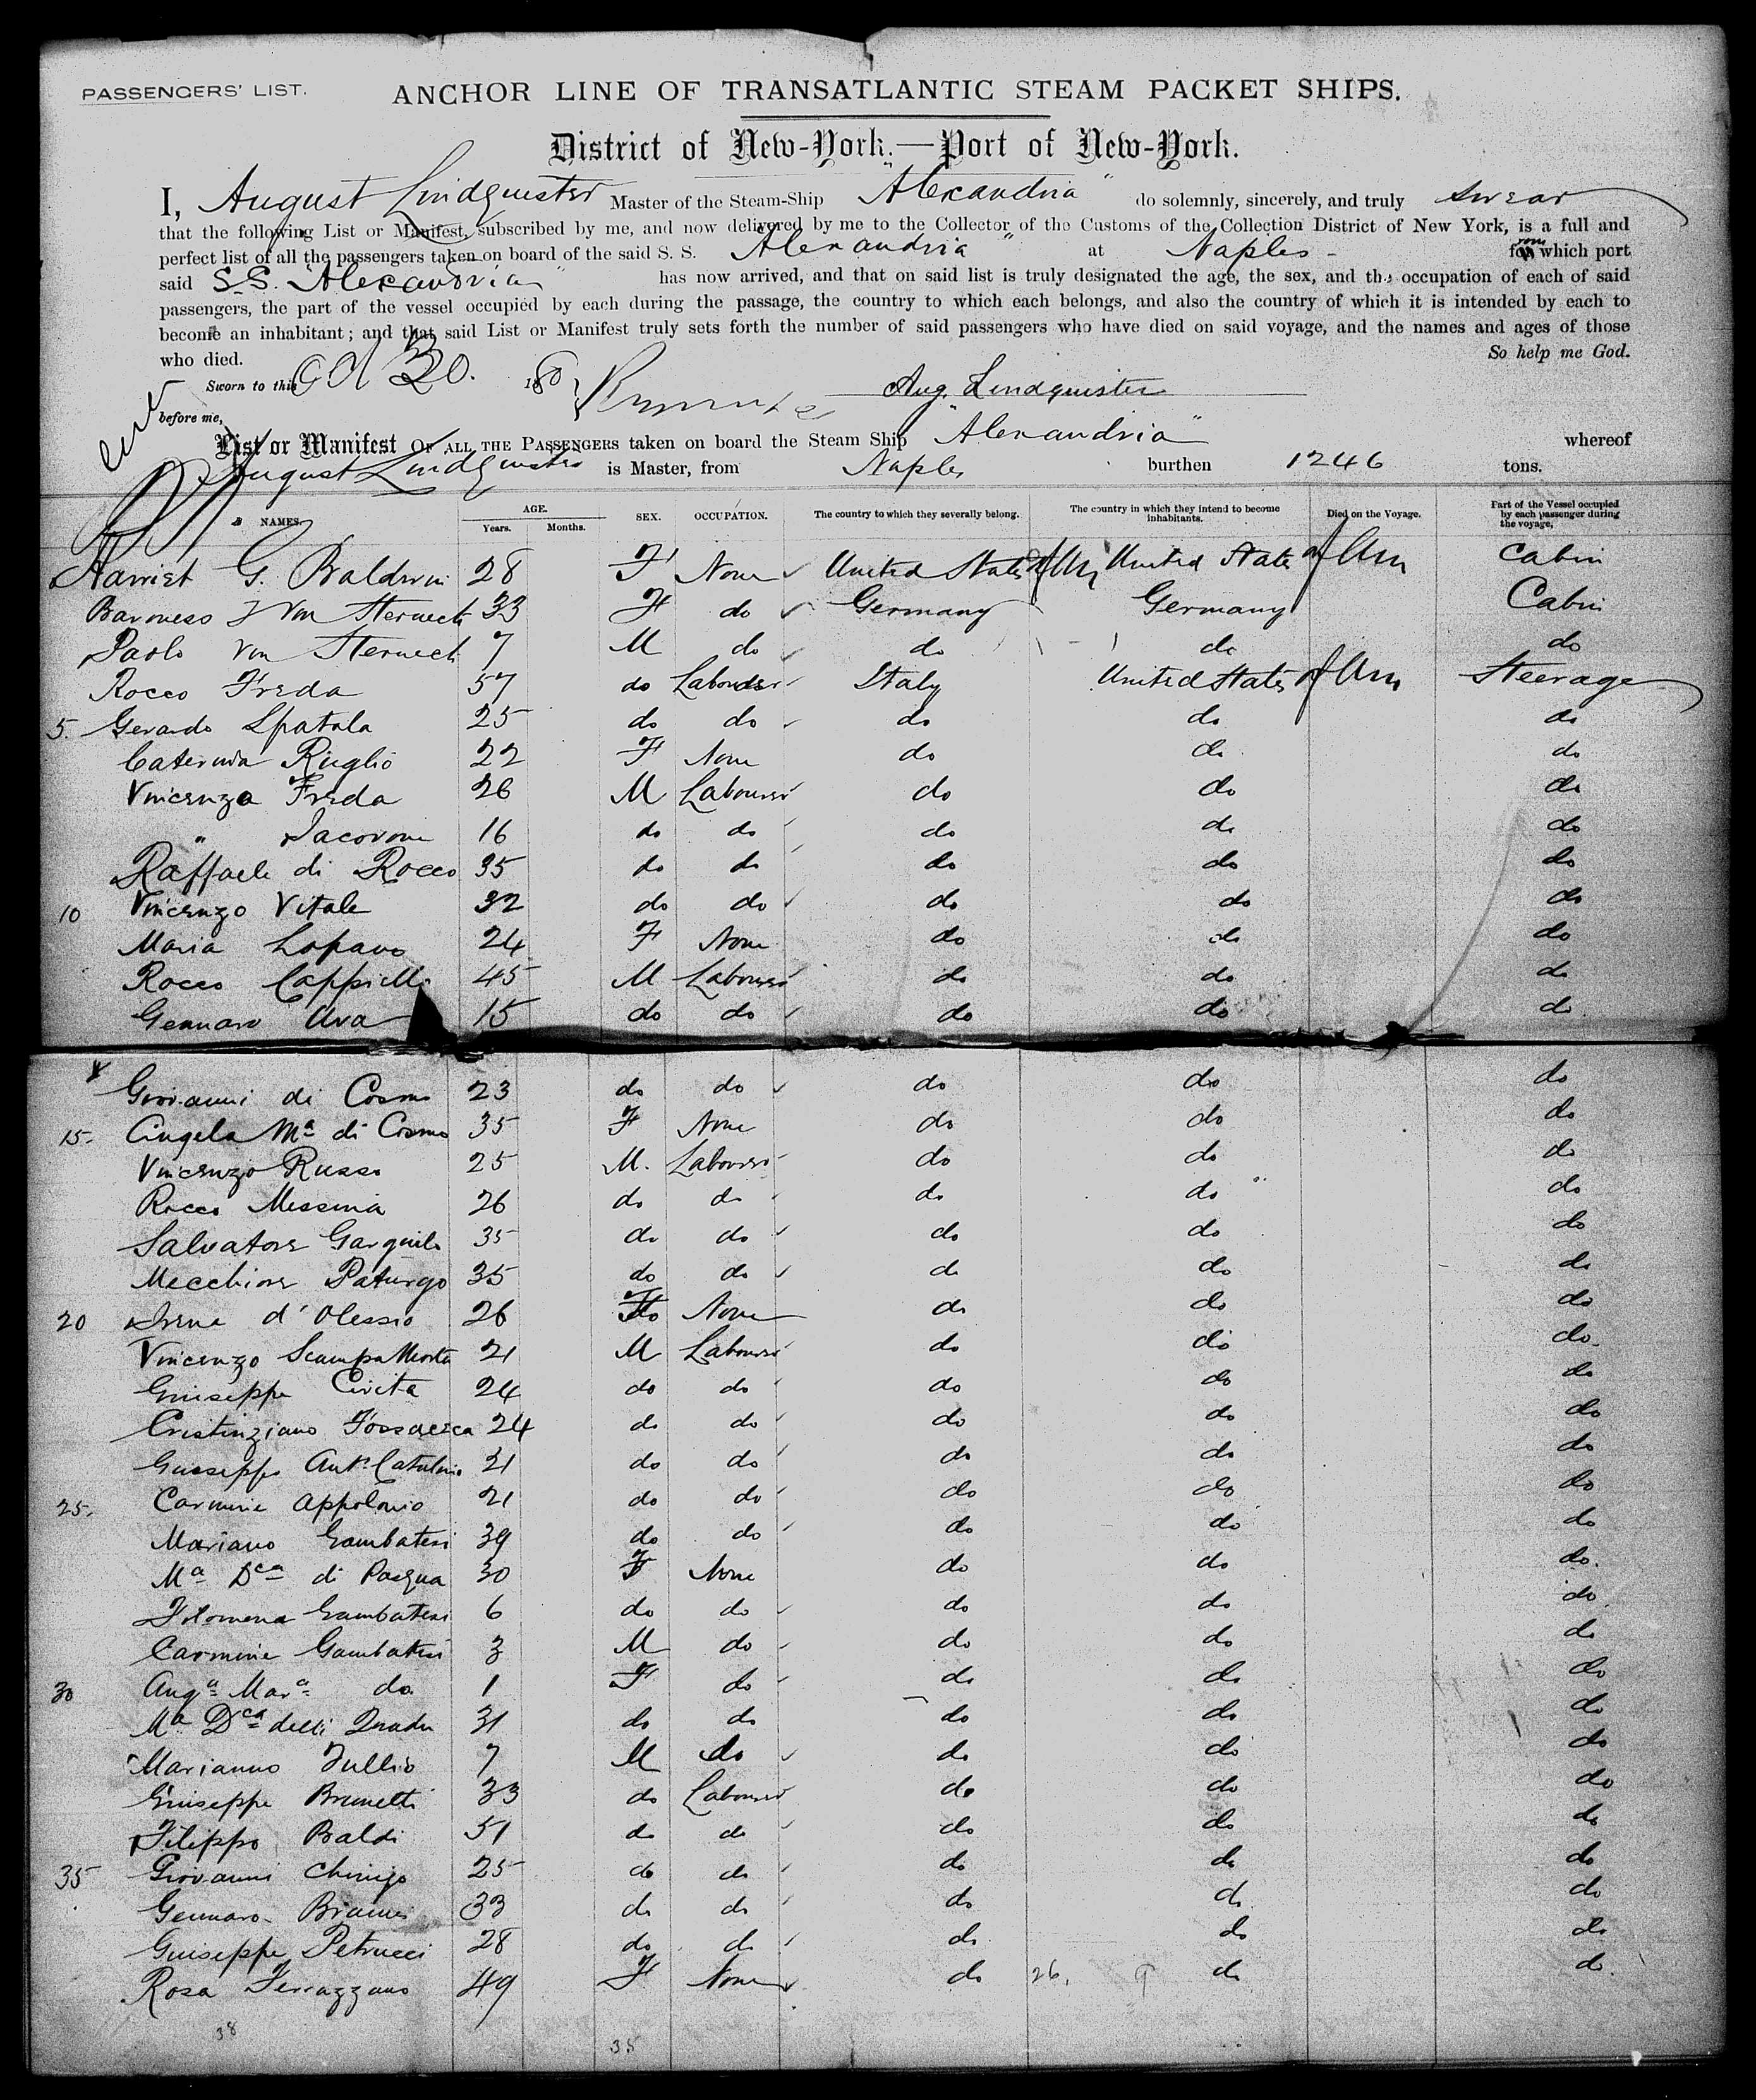 PASSENGERS' LIST.
ANCHOR LINE OF TRANSATLANTIC STEAM PACKET SHIPS.
District of New-York.—Port of New-York.
I, August Lindquister Master of the Steam-Ship "Alexandria" do solemnly, sincerely, and truly swear
that the following List or Manifest, subscribed by me, and now delivered by me to the Collector of the Customs of the Collection District of New York, is a full and
perfect list of all the passengers taken on board of the said S. S. Alexandria" at Naples - from which port
said S.S. "Alexandria" has now arrived, and that on said list is truly designated the age, the sex, and the occupation of each of said
passengers, the part of the vessel occupied by each during the passage, the country to which each belongs, and also the country of which it is intended by each to
become an inhabitant; and that said List or Manifest truly sets forth the number of said passengers who have died on said voyage, and the names and ages of those
who died. So help me God.
Sworn to this Oct 30. 1880
before me, Aug. Lindquister
List or Manifest OF ALL THE PASSENGERS taken on board the Steam Ship "Alexandria" whereof
August Lindquister is Master, from Naples burthen 1246 tons.
NAMES. AGE. Years. Months. SEX. OCCUPATION. The country to which they severally belong. The country in which they intend to become inhabitants. Died on the Voyage. Part of the Vessel occupied by each passenger during the voyage,
Harriet G. Baldwin 28 F None United States of Am United States of Am Cabin
Baroness J von Sterneck 33 F do Germany Germany Cabin
Paolo von Sterneck 7 M do do do do
Rocco Freda 57 do Labourer Italy United States of Am Steerage
5. Gerardo Spatola 25 do do do do do
Caterina Ruglio 22 F None do do do
Vincenzo Freda 26 M Labourer do do do
" Iacovone 16 do do do do do
Raffaele di Rocco 35 do do do do do
10 Vincenzo Vitale 32 do do do do do
Maria Lopano 24 F None do do do
Rocco Cappiello 45 M Labourer do do do
Gennaro Ava 15 do do do do do
Giovanni di Cosmo 23 do do do do do
15. Angela Ma di Cosmo 35 F None do do do
Vincenzo Russo 25 M. Labourer do do do
Rocco Messina 26 do do do do do
Salvatore Gargiulo 35 do do do do do
Mecchiore Paturgo 35 do do do do do
20 Irene d'Olessio 26 F None do do do
Vincenzo ScampaMorta 21 M Labourer do do do.
Giuseppe Civita 24 do do do do do
Cristinziano Fossacesca 24 do do do do do
Giuseppe Ant. Catulano 21 do do do do do
25. Carmine Appolonio 21 do do do do do
Mariano Gambatesi 39 do do do do do
Ma Dca di Pasqua 30 F None do do do.
Filomena Gambatesi 6 do do do do do.
Carmine Gambatesi 3 M do do do do
30 Anga Mara do. 1 F do do do do
Ma Dca delli Quadri 31 do do do do do
Marianno Tullio 7 M do do do do
Giuseppe Brunetti 33 do Labourer do do do
Filippo Baldi 51 do do do do do
35 Giovanni Chirigo 25 do do do do do
Gennaro 33 do do do do do
Giuseppe Petrucci 28 do do do do do
Rosa Ferrazzano 49 F None do 26, 9 do do.
38 35